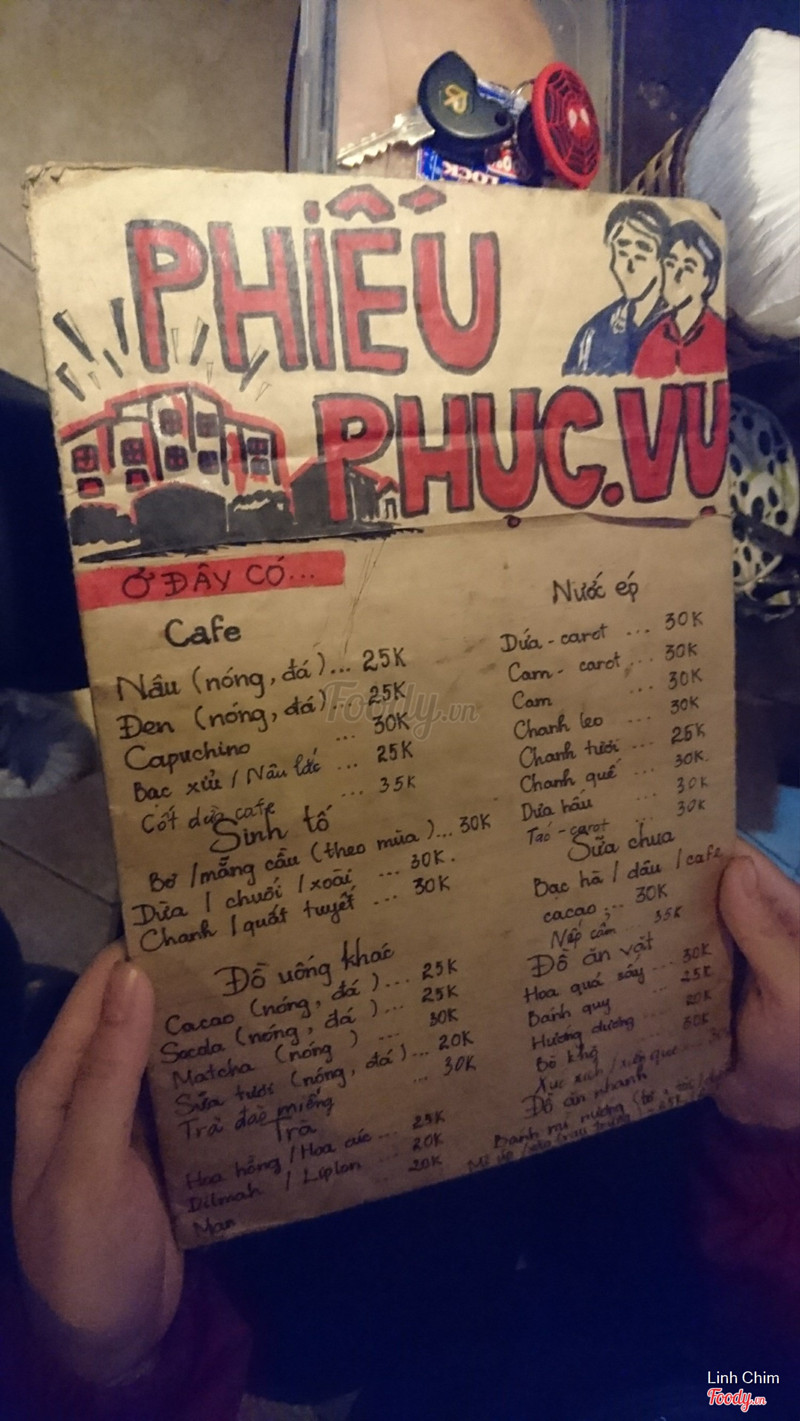 PHIẾU
PHỤC.VỤ
Ở ĐÂY CÓ...
Cafe
Nâu (nóng, đá)... 25K
Đen (nóng, đá)... 25K
Capuchino ... 30K
Bạc xỉu / Nâu lắc ... 25K
Cốt dừa cafe ... 35K
Sinh tố
Bơ / mãng cầu (theo mùa)... 30K
Dừa / chuối / xoài ... 30K.
Chanh / quất tuyết ... 30K
Đồ uống khác
Cacao (nóng, đá)... 25K
Socola (nóng, đá)... 25K
Matcha (nóng) ... 30K
Sữa tươi (nóng, đá)... 20K
Trà đào miếng ... 30K
Trà
Hoa hồng / Hoa cúc ... 25K
Dilmah / Lipton ... 20K
20K
Nước ép
Dứa - carot ... 30K
Cam - carot ... 30K
Cam ... 30K
Chanh leo ... 30K
Chanh tươi ... 25K
Chanh quế ... 30K.
Dưa hấu ... 30K
Táo - carot ... 30K
Sữa chua
Bạc hà / dâu / cafe
cacao ... 30K
Nếp cẩm ... 35K
Đồ ăn vặt
Hoa quả sấy ... 30K
Bánh quy ... 25K
Hướng dương ... 20K
Bò khô ... 30K
Xúc xích
Đồ ăn nhanh
Bánh mì nướng
Foody.vn
Linh Chim
Foody.vn